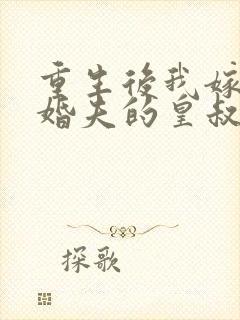 重生後我嫁
婚夫的皇叔
探歌